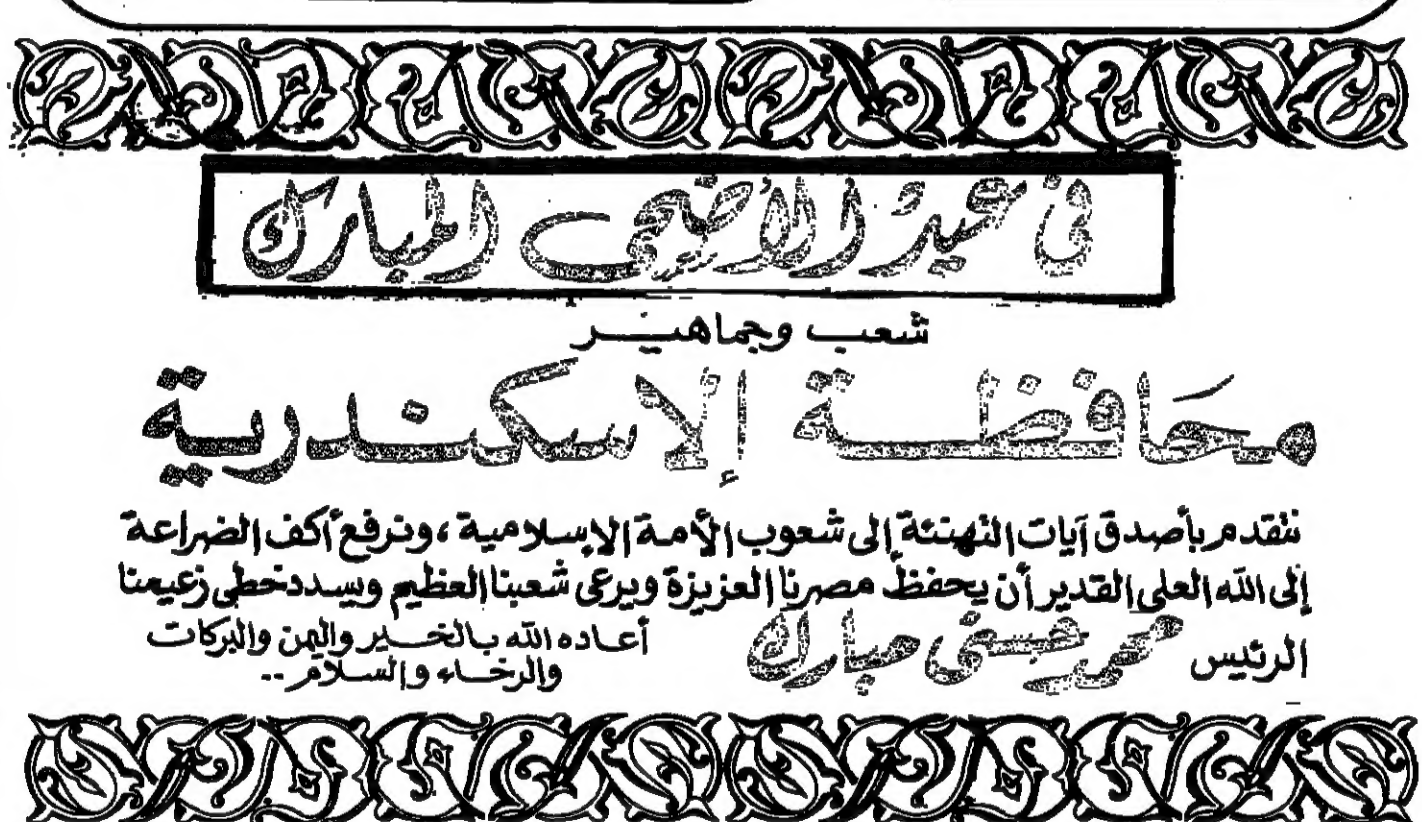 فى عيد الأضحى المبارك
شعب وجماهير
محافظة الإسكندرية
نتقدم بأصدق آيات التهنئة إلى شعوب الأمة الإسلامية، ونرفع أكف الضراعة
إلى الله العلى القدير أن يحفظ مصرنا العزيزة ويرعى شعبنا العظيم ويسدد خطى زعيمنا
الرئيس محمد حسنى مبارك
أعاده الله بالخير واليمن والبركات
والرخاء والسلام..